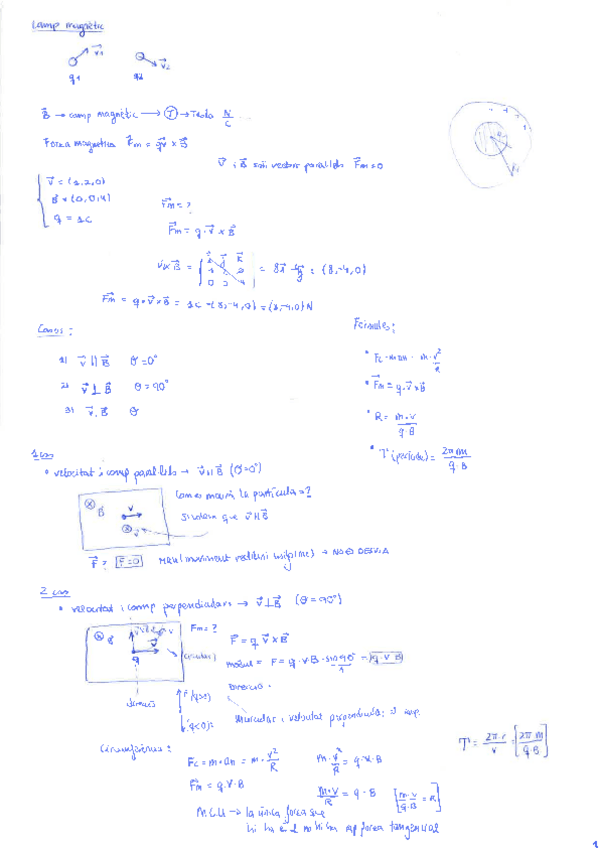 Camp magnètic
v1
v2
q1
q2
B → camp magnètic → T → Tesla N/C
Força magnètica Fm = qv × B
v i B són vectors paral·lels Fm = 0
v = (1,2,0)
B = (0,0,4)
q = 1C
Fm = ?
Fm = q · v × B
v × B = = 8i - 4j = (8,-4,0)
Fm = q · v × B = 1C · (8,-4,0) = (8,-4,0) N
Casos:
1) v || B θ = 0°
2) v ⊥ B θ = 90°
3) v, B θ
Fórmules:
• Fc = m·an = m · v²/R
• Fm = q · v × B
• R = m·v / q·B
• T (període) = 2πm / q·B
1 cas
• velocitat i camp paral·lels → v || B (θ = 0°)
B
v
Com es mourà la partícula = ?
Si volem que v || B
F? F = 0 MRU (moviment rectilini uniforme) → NO ES DESVIA
2 cas
• velocitat i camp perpendiculars → v ⊥ B (θ = 90°)
B
v
q
Fm = ?
F = q v × B
mòdul = F = q · v · B · sin 90° = q · v · B
1
Direcció
F (q>0)
(q<0)
Circumferència:
Fc = m · an = m · v²/R
Fm = q · v · B
m · v²/R = q · v · B
m · v / R = q · B
[m · v / q · B = R]
T = 2π · r / v = [2π m / q B]
M.C.U → la única força que
hi ha és i no hi ha cap força tangencial
1